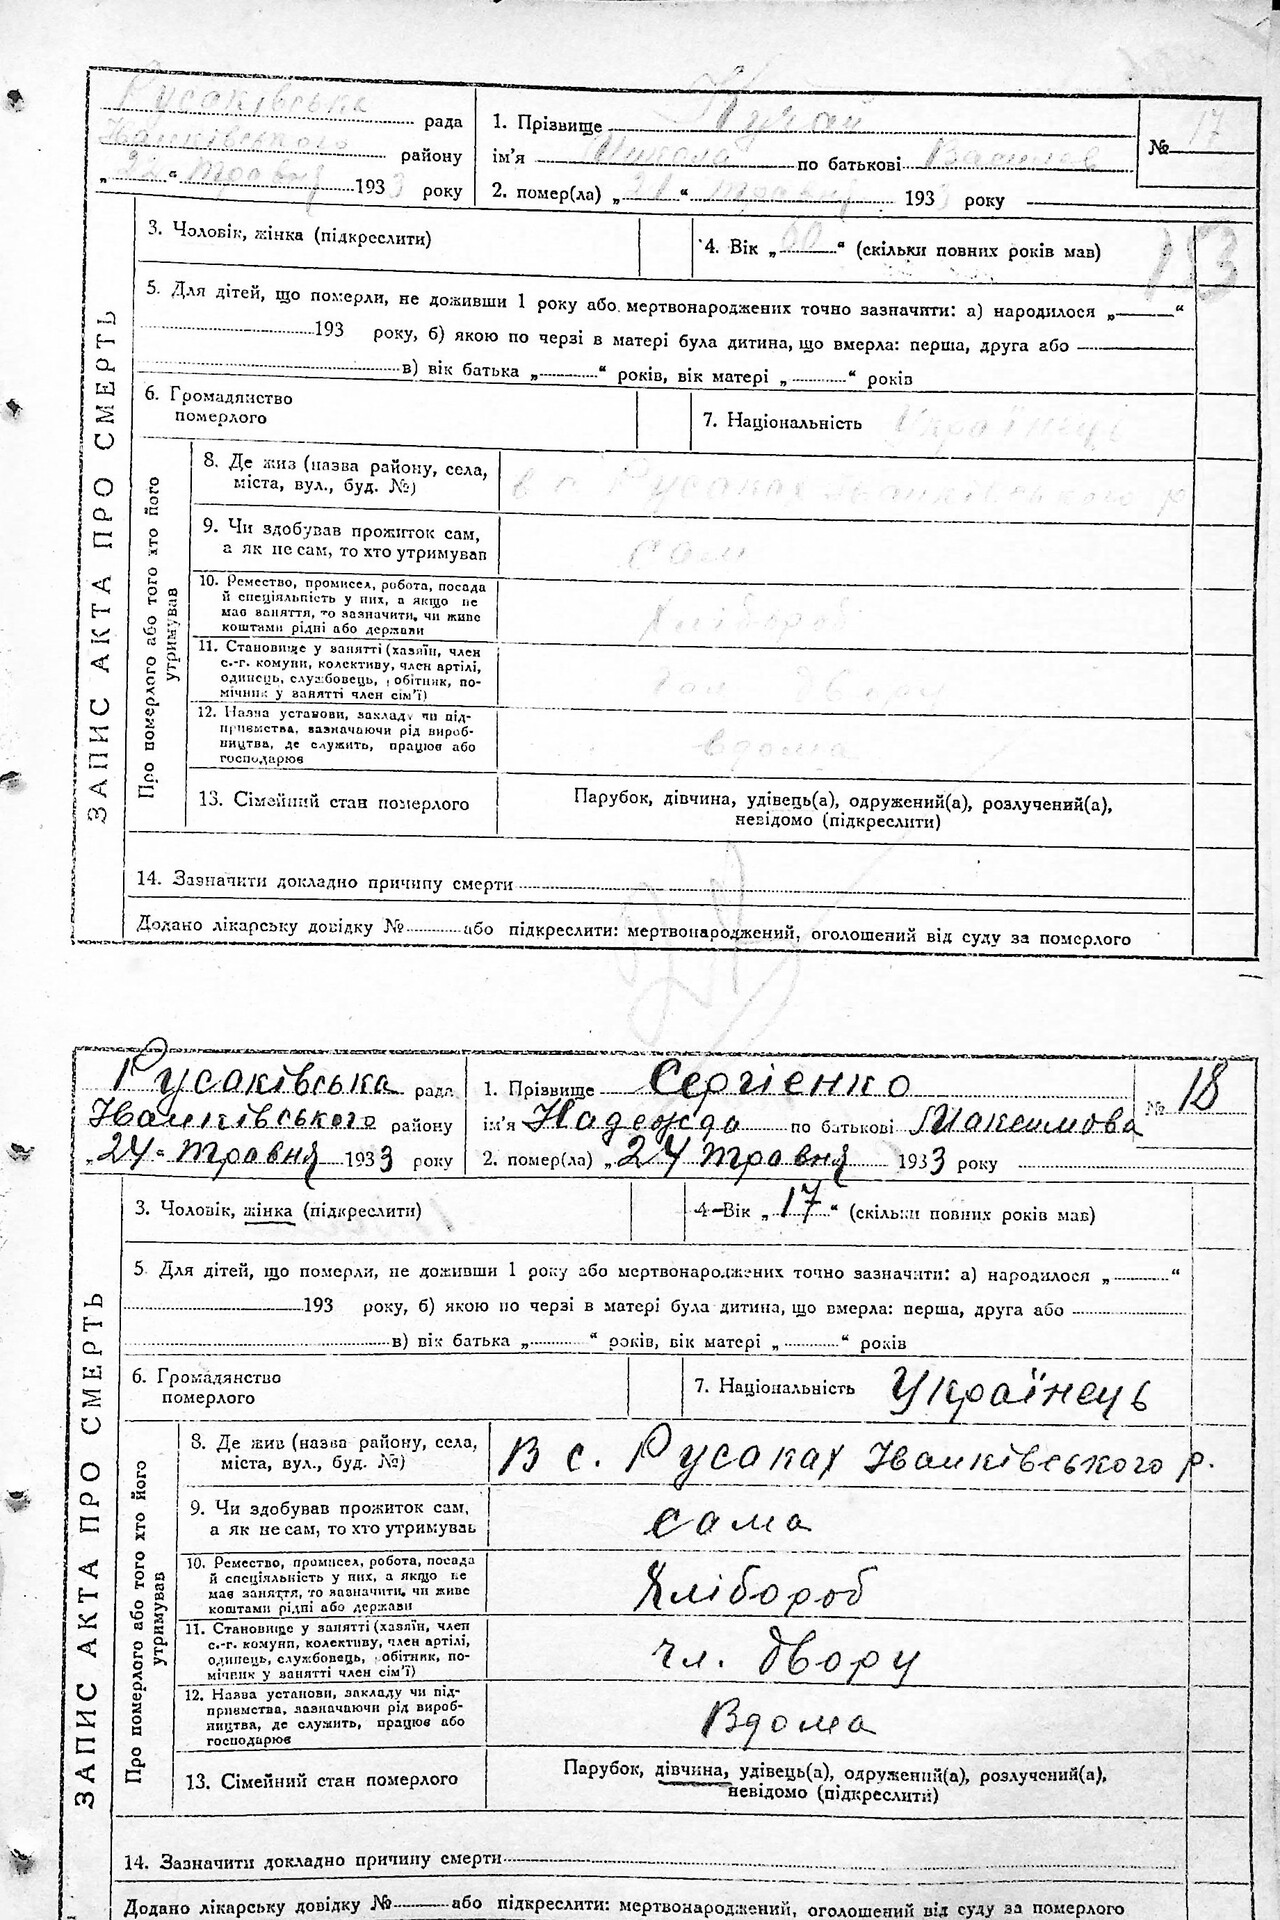 Русаківська рада
Іванківського району
„22“ Травня 1933 року
1. Прізвище
ім'я Микола по батькові Васильов
№ 17
2. помер(ла) „21“ травня 1933 року
3. Чоловік, жінка (підкреслити)
4. Вік „60“ (скільки повних років мав)
153
5. Для дітей, що померли, не доживши 1 року або мертвонароджених точно зазначити: а) народилося „ “
193 року, б) якою по черзі в матері була дитина, що вмерла: перша, друга або
в) вік батька „ “ років, вік матері „ “ років
6. Громадянство
померлого
7. Національність Українець
ЗАПИС АКТА ПРО СМЕРТЬ
Про померлого або того хто його
утримував
8. Де жив (назва району, села,
міста, вул., буд. №)
в с Русаках Іванківського р
9. Чи здобував прожиток сам,
а як не сам, то хто утримував
сам
10. Ремество, промисел, робота, посада
й спеціяльність у них, а якщо не
має заняття, то зазначити, чи живе
коштами рідні або держави
Хлібороб
11. Становище у занятті (хазяїн, член
с.-г. комуни, колективу, член артілі,
одинець, службовець, робітник, по-
мічник у занятті член сім'ї)
гол двору
12. Назва установи, закладу чи під-
приємства, зазначаючи рід вироб-
ництва, де служить, працює або
господарює
вдома
13. Сімейний стан померлого
Парубок, дівчина, удівець(а), одружений(а), розлучений(а),
невідомо (підкреслити)
14. Зазначити докладно причину смерти
Додано лікарську довідку № або підкреслити: мертвонароджений, оголошений від суду за померлого
Русаківська рада
Іванківського району
„24“ травня 1933 року
1. Прізвище Сергієнко
ім'я Надежда по батькові Максимова
№ 18
2. помер(ла) „24 травня 1933 року
3. Чоловік, жінка (підкреслити)
4 Вік „17“ (скільки повних років мав)
5. Для дітей, що померли, не доживши 1 року або мертвонароджених точно зазначити: а) народилося „ “
193 року, б) якою по черзі в матері була дитина, що вмерла: перша, друга або
в) вік батька „ “ років, вік матері „ “ років
6. Громадянство
померлого
7. Національність Українець
ЗАПИС АКТА ПРО СМЕРТЬ
Про померлого або того хто його
утримував
8. Де жив (назва району, села,
міста, вул., буд. №)
В с. Русаках Іванківського р.
9. Чи здобував прожиток сам,
а як не сам, то хто утримував
сама
10. Ремество, промисел, робота, посада
й спеціяльність у них, а якщо не
має заняття, то зазначити, чи живе
коштами рідні або держави
Хлібороб
11. Становище у занятті (хазяїн, член
с.-г. комуни, колективу, член артілі,
одинець, службовець, робітник, по-
мічник у занятті член сім'ї)
чл. двору
12. Назва установи, закладу чи під-
приємства, зазначаючи рід вироб-
ництва, де служить, працює або
господарює
Вдома
13. Сімейний стан померлого
Парубок, дівчина, удівець(а), одружений(а), розлучений(а),
невідомо (підкреслити)
14. Зазначити докладно причину смерти
Додано лікарську довідку № або підкреслити: мертвонароджений, оголошений від суду за померлого